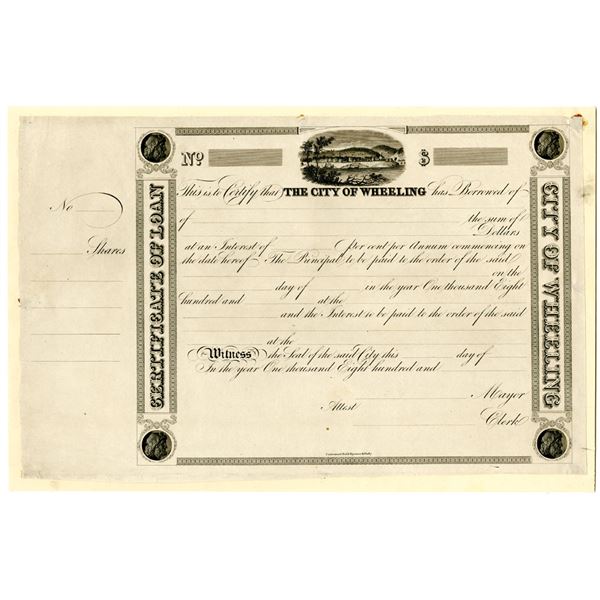 No
Shares
CERTIFICATE OF LOAN
CITY OF WHEELING
No $
This is to Certify that THE CITY OF WHEELING has Borrowed of
of the sum of
Dollars
at an Interest of per cent per Annum commencing on
the date hereof. The Principal to be paid to the order of the said
on the
day of in the year One thousand Eight
hundred and at the
and the Interest to be paid to the order of the said
at the
Witness the Seal of the said City this day of
In the year One thousand Eight hundred and
Mayor
Attest
Clerk